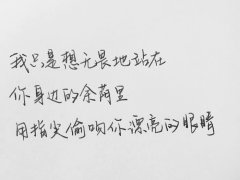 我只是想无畏地站在
你身边的余荫里
用指尖偷吻你漂亮的眼睛